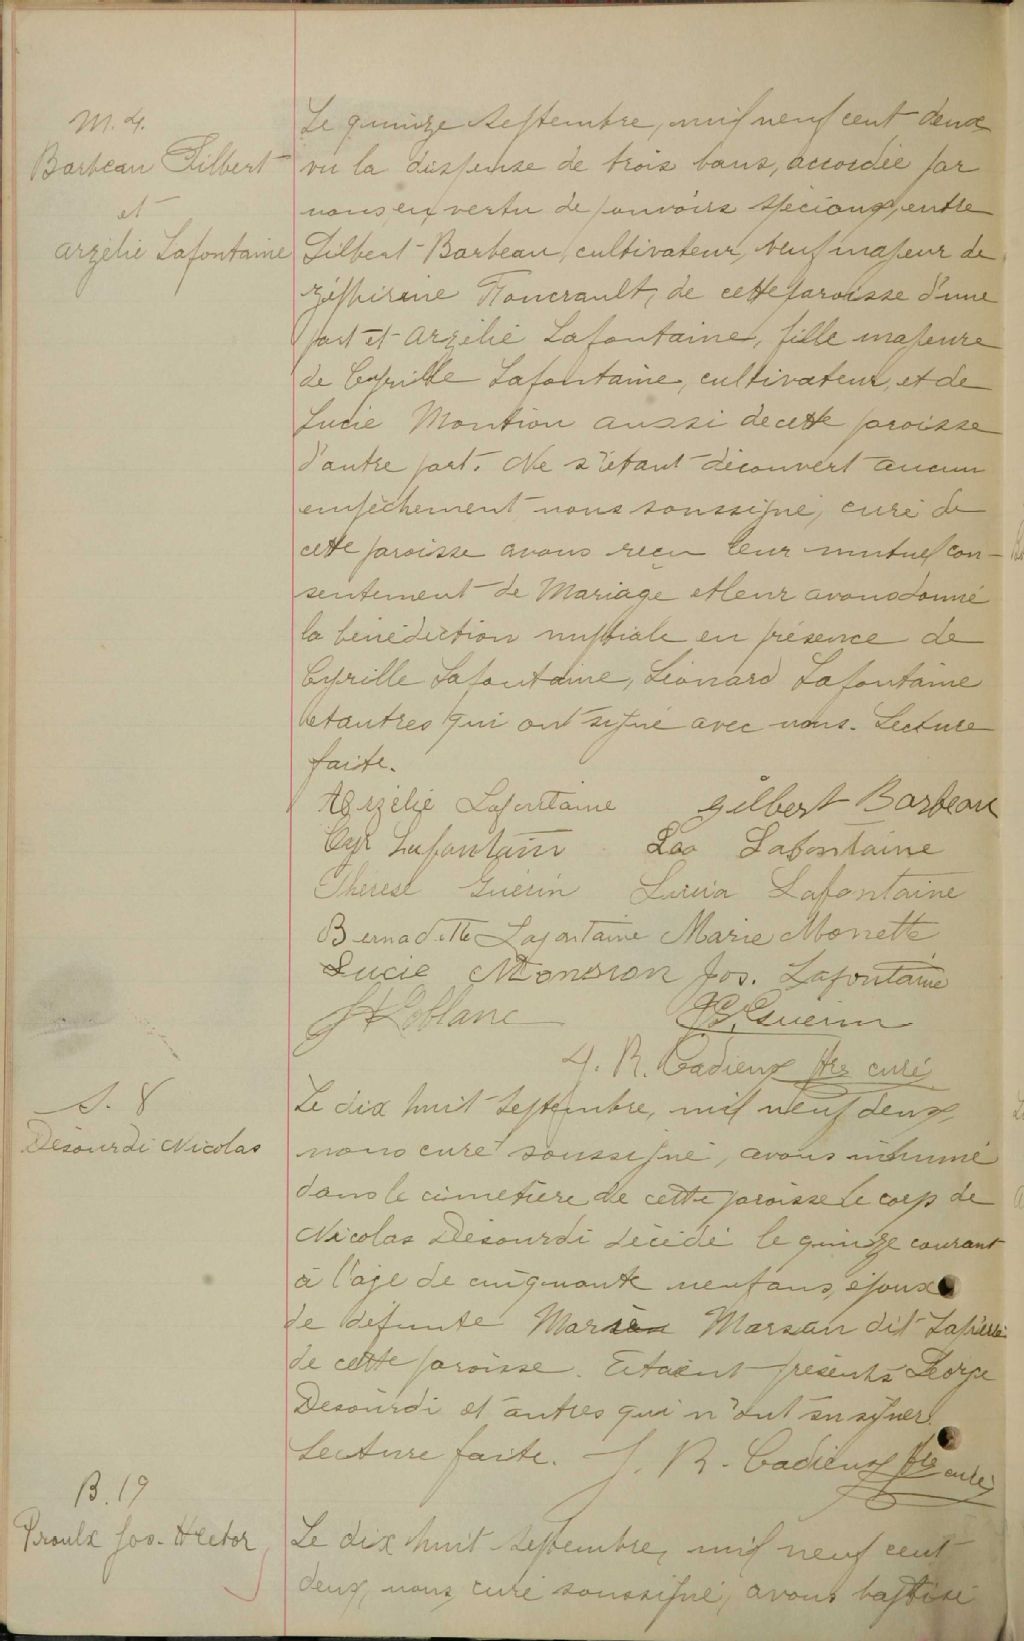 M. 4.
Barbeau Gilbert
et
Arzélie Lafontaine
Le quinze septembre, mil neuf cent deux
vu la dispense de trois bans, accordée par
nous, en vertu de pouvoirs spéciaux, entre
Gilbert Barbeau, cultivateur, veuf majeur de
Zéphirine Foucrault, de cette paroisse d'une
part et Arzélie Lafontaine, fille majeure
de Cyrille Lafontaine, cultivateur, et de
Lucie Montion aussi de cette paroisse
d'autre part. Ne s'étant découvert aucun
empêchement nous soussigné, curé de
cette paroisse avons reçu leur mutuel con-
sentement de Mariage et leur avons donné
la bénédiction nuptiale en présence de
Cyrille Lafontaine, Léonard Lafontaine
et autres qui ont signé avec nous. Lecture
faite.
Arzélie Lafontaine Gilbert Barbeau
Cyr Lafontain Léo Lafontaine
Thérèse Guérin Lucia Lafontaine
Bernadette Lafontaine Marie Monette
Lucie Mondion Jos. Lafontaine
Leblanc Guérin
J. R. Cadieux Ptre curé
S. 8
Désourdi Nicolas
Le dix huit Septembre, mil neuf deux,
nous curé soussigné, avons inhumé
dans le cimetière de cette paroisse le corp de
Nicolas Désourdi décédé le quinze courant
à l'age de cinquante neuf ans, époux
de défunte Marsan dit Lapierre
de cette paroisse. Etaient présents George
Desourdi et autres qui n'ont su signer.
Lecture faite. J. R. Cadieux Ptre curé
B. 19
Proulx Jos. Hector
Le dix huit septembre, mil neuf cent
deux, nous curé soussigné, avons baptisé